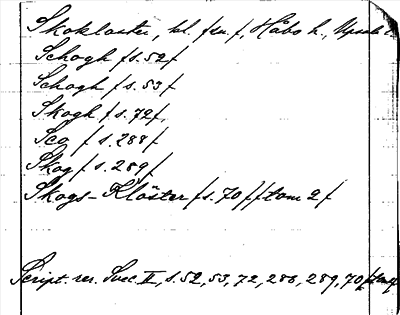 Skokloster, kl. fsn. f, Håbo h., Upsala l.
Schogh / s. 52 /
Schogh / s. 53 /
Skogh / s. 72 /
Sco / s. 288 /
Skog / s. 289 /
Skogs-Klöster / s. 70 / / tom 2 /
Script. rer. Svec. II, s. 52, 53, 72, 286, 289, 70